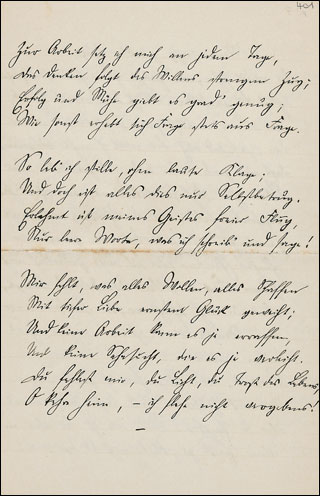 401
Zur Arbeit setz ich mich an jedem Tag,
Das Denken folgt des Willens strengem Zug;
Erfolg und Mühe giebt es grad' genug;
Wie sonst erhebt sich Frage stets aus Frage.
So leb' ich stille, ohne laute Klage;
Und doch ist alles dies nur Selbstbetrug.
Erlahmt ist meines Geistes freier Flug,
Nur leere Worte, was ich schreib' und sage!
Mir fehlt, was alles Wollen, alles Schaffen
Mit tiefer Liebe ernstem Glück geweiht;
Und keine Arbeit kann es je erraffen,
Und keine Sehnsucht, die es je
Du fehlest mir, du Licht, du Trost des Lebens,
O kehre heim, – ich flehe nicht vergebens!
–